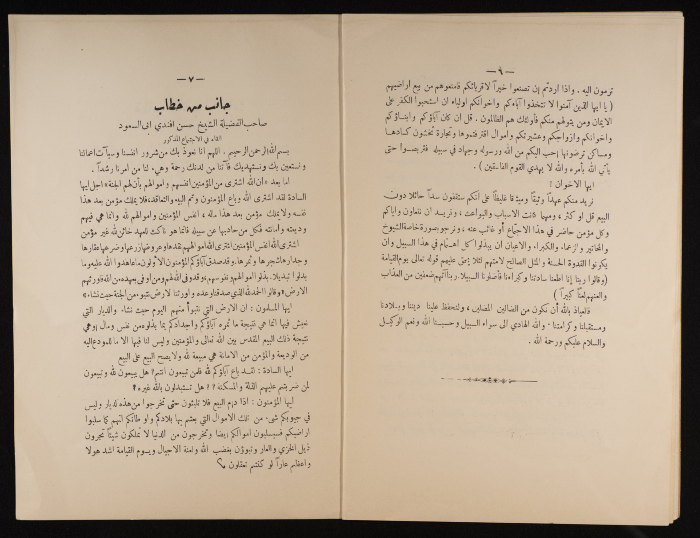 — ٧ —
جانب من خطاب
صاحب الفضيلة الشيخ حسن افندي ابى السعود
القاه في الاجتماع المذكور
بسم الله الرحمن الرحيم . اللهم انا نعوذ بك من شرور انفسنا وسيآت اعمالنا
ونستعين بك ونستهديك فآتنا من لدنك رحمة وهيء لنا من امرنا رشداً .
اما بعد « ان الله اشترى من المؤمنين انفسهم واموالهم بأن لهم الجنة » اجل ايها
السادة لقد اشترى الله وباع المؤمنون وتم البيع والتعاقد فلا يملك مؤمن بعد هذا
نفسه ولا يملك مؤمن بعد هذا ماله ، انفس المؤمنين واموالهم لله وانما هي فيهم
وديعته وأمانته فكل من حاد بها عن سبيله فانما هو ناكث للعهد خائن لله غير مؤمن
اشترى الله انفس المؤمنين اشترى الله اموالهم نقدها وعروضها زرعها وضرعها عقارها
وجدارها شجرها وثمرها . وقد صدق آباؤكم المؤمنون الاولون ما عاهدوا الله عليه وما
بدلوا تبديلا . بذلوا اموالهم ونفوسهم ، وقد وفى الله لهم ومن اوفى بعهده من الله فاورثهم
الارض « وقالوا الحمد لله الذي صدقنا وعده واورثنا الارض نتبوء من الجنة حيث نشاء »
ايها المسلمون : ان الارض التي نتبوأ منهم اليوم حيث نشاء والديار التي
نعيش فيها انما هي نتيجة ما ثمره آباؤكم واجدادكم بما بذلوه من نفس ومال ، وهي
نتيجة ذلك البيع المقدس بين الله تعالى والمؤمنين وليس لنا فيها الا ما للمودع اليه
من الوديعة والمؤمن من الامانة هي مبيعة لله ولا يصح البيع على البيع
ايها السادة : لقد باع آباؤكم لله فلمن تبيعون انتم ? هل تبيعون لله وتبيعون
لمن ضربتم عليهم الذلة والمسكنة ? ? هل تستبدلون بالله غيره ?
ايها المؤمنون : اذا دام البيع فلا تلبثون حتى تخرجوا من هذه الديار وليس
في جيوبكم شيء من تلك الاموال التي بعتم بها بلادكم واوطانكم انهم كما سلبوا
اراضيكم فسيسلبون اموالكم ايضا وتخرجون من الدنيا لا تملكون شيئاً تجرون
ذيل الخزي والعار وتبوؤن بغضب الله ولعنة الاجيال ويوم القيامة اشد هولا
واعظم عاراً لو كنتم تعقلون
— ٩ —
ترمون اليه . واذا اردتم ان تصنعوا خيراً لاقربائكم فامنعوهم من بيع اراضيهم
( يا ايها الذين آمنوا لا تتخذوا آباءكم واخوانكم اولياء ان استحبوا الكفر على
الايمان ومن يتولهم منكم فأولئك هم الظالمون . قل ان كان آباؤكم وابناؤكم
واخوانكم وازواجكم وعشيرتكم واموال اقترفتموها وتجارة تخشون كسادها
ومساكن ترضونها احب اليكم من الله ورسوله وجهاد في سبيله فتربصوا حتى
يأتي الله بأمره والله لا يهدي القوم الفاسقين ) .
ايها الاخوان :
نريد منكم عهداً وثيقاً وميثاقا غليظاً على انكم ستقفون سداً حائلا دون
البيع قل او كثر ، ومهما كانت الاسباب والبواعث ، ونريد ان نتعاون واياكم
وكل مؤمن حاضر في هذا الاجتماع أو غائب عنه ، ونرجو بصورة خاصة الشيوخ
والمخاتير والزعماء والكبراء والاعيان ان يبذلوا كل اهتمام في هذا السبيل وان
يكونوا القدوة الحسنة والمثل الصالح لامتهم لئلا يحق عليهم قوله تعالى يوم القيامة
( وقالوا ربنا إنا اطعنا سادتنا وكبراءنا فأضلونا السبيلا . ربنا آتهم ضعفين من العذاب
والعنهم لعناً كبيراً )
فالعياذ بالله أن نكون من الضالين المضلين ، ولنحفظ علينا ديننا وبلادنا
ومستقبلنا وكرامتنا . والله الهادي الى سواء السبيل وحسبنا الله ونعم الوكيل
والسلام عليكم ورحمة الله .